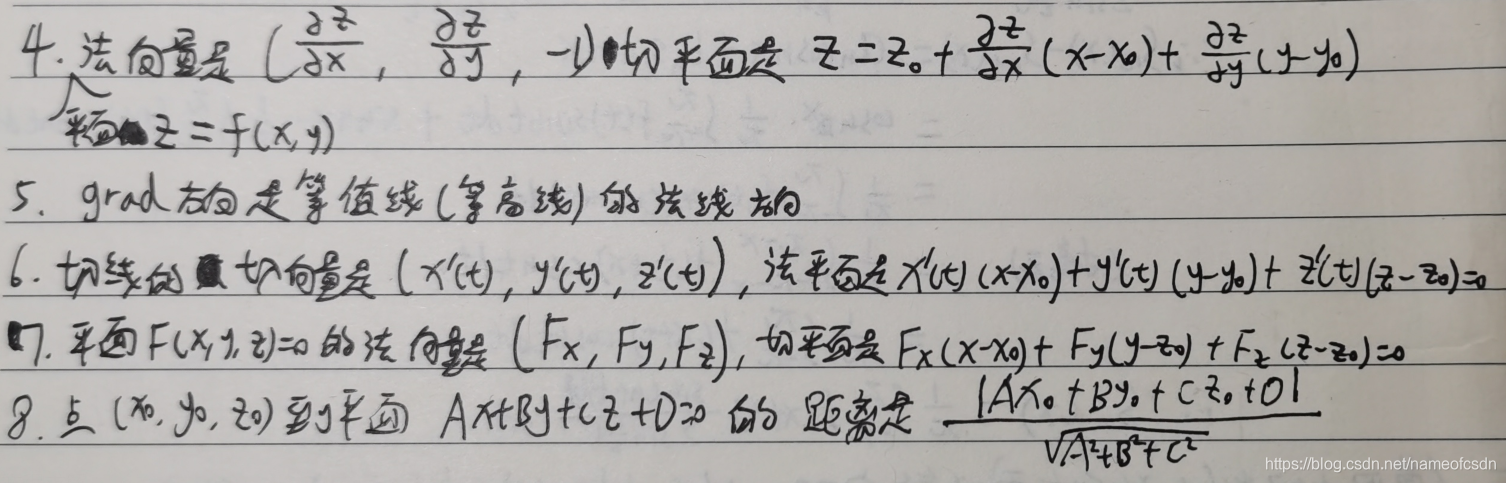 4. 法向量是 (∂z/∂x, ∂z/∂y, -1) 切平面是 z = z₀ + ∂z/∂x (x-x₀) + ∂z/∂y (y-y₀)
平面 z = f(x,y)
5. grad方向是等值线(等高线)的法线方向
6. 切线的切向量是 (x'(t), y'(t), z'(t)), 法平面是 x'(t)(x-x₀) + y'(t)(y-y₀) + z'(t)(z-z₀)=0
7. 平面F(x,y,z)=0的法向量是 (Fx, Fy, Fz), 切平面是 Fx(x-x₀) + Fy(y-z₀) + Fz(z-z₀)=0
8. 点 (x₀, y₀, z₀) 到平面 Ax+By+Cz+D=0 的距离是 |Ax₀+By₀+Cz₀+D| / √(A²+B²+C²)
https://blog.csdn.net/nameofcsdn